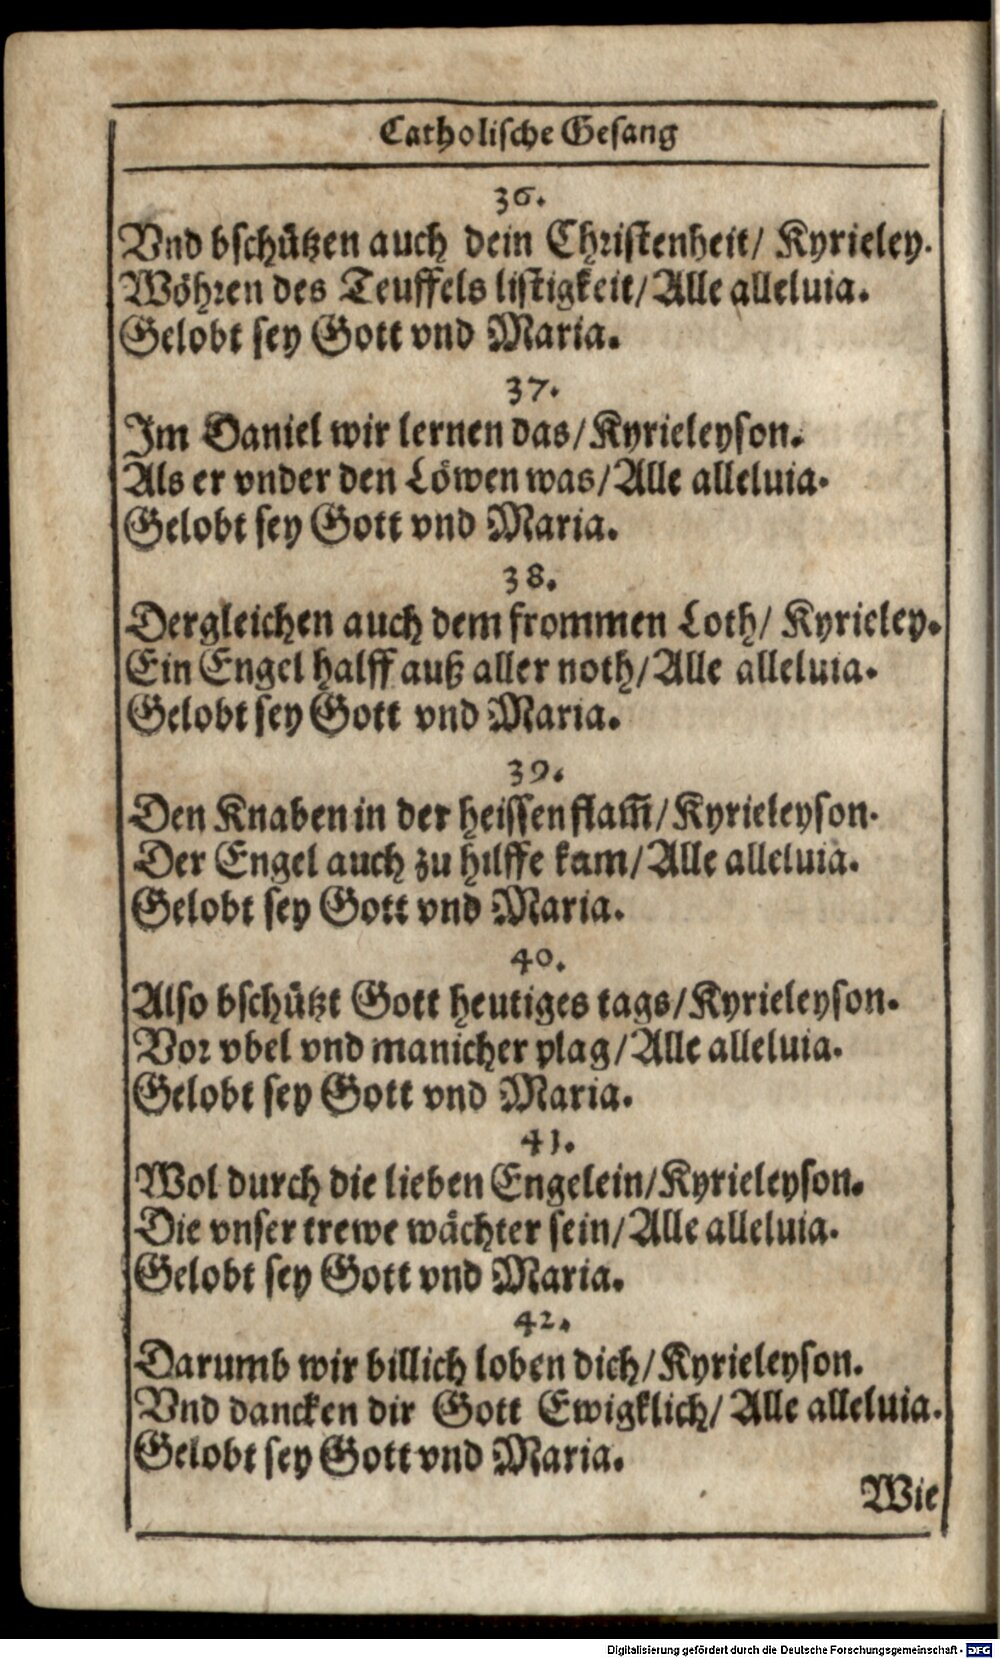 Catholische Gesang
36.
Vnd bschützen auch dein Christenheit/ Kyrieley.
Wöhren des Teuffels listigkeit/ Alle alleluia.
Gelobt sey Gott vnd Maria.
37.
Im Daniel wir lernen das/ Kyrieleyson.
Als er vnder den Löwen was/ Alle alleluia.
Gelobt sey Gott vnd Maria.
38.
Dergleichen auch dem frommen Loth/ Kyrieley.
Ein Engel halff auß aller noth/ Alle alleluia.
Gelobt sey Gott vnd Maria.
39.
Den Knaben in der heissen flam̃/ Kyrieleyson.
Der Engel auch zu hilffe kam/ Alle alleluia.
Gelobt sey Gott vnd Maria.
40.
Also bschützt Gott heutiges tags/ Kyrieleyson.
Vor vbel vnd manicher plag/ Alle alleluia.
Gelobt sey Gott vnd Maria.
41.
Wol durch die lieben Engelein/ Kyrieleyson.
Die vnser trewe wächter sein/ Alle alleluia.
Gelobt sey Gott vnd Maria.
42.
Darumb wir billich loben dich/ Kyrieleyson.
Vnd dancken dir Gott Ewigklich/ Alle alleluia.
Gelobt sey Gott vnd Maria.
Wie
Digitalisierung gefördert durch die Deutsche Forschungsgemeinschaft - DFG